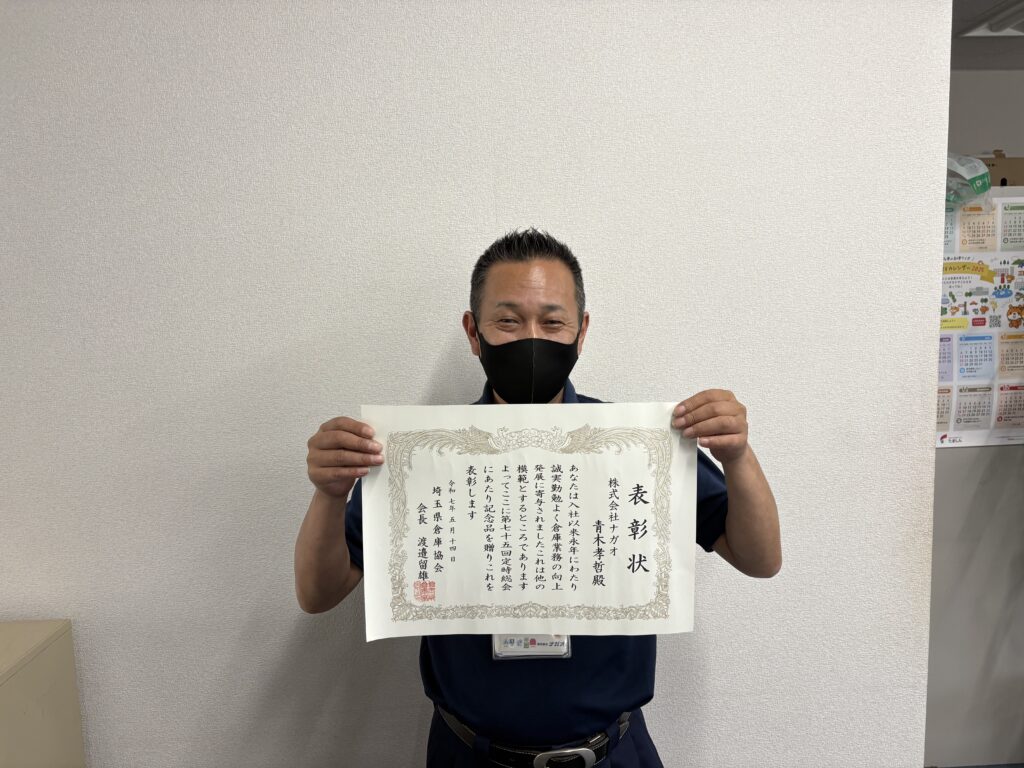 表彰状
株式会社ナガオ
青木孝哲殿
あなたは入社以来永年にわたり
誠実勤勉よく倉庫業務の向上
発展に寄与されましたこれは他の
模範とするところであります
よってここに第七十五回定時総会
にあたり記念品を贈りこれを
表彰します
令和七年五月十四日
埼玉県倉庫協会
会長 渡邉留雄
株式会社ナガオ
カレンダー2025
たましん